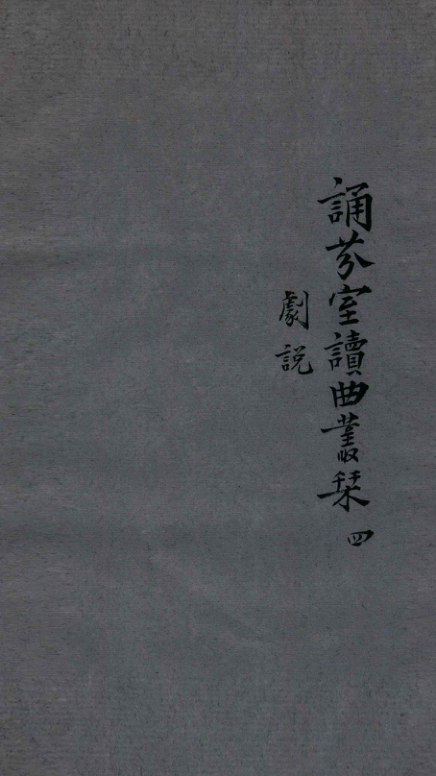 誦芬室讀曲叢栞 四
劇説